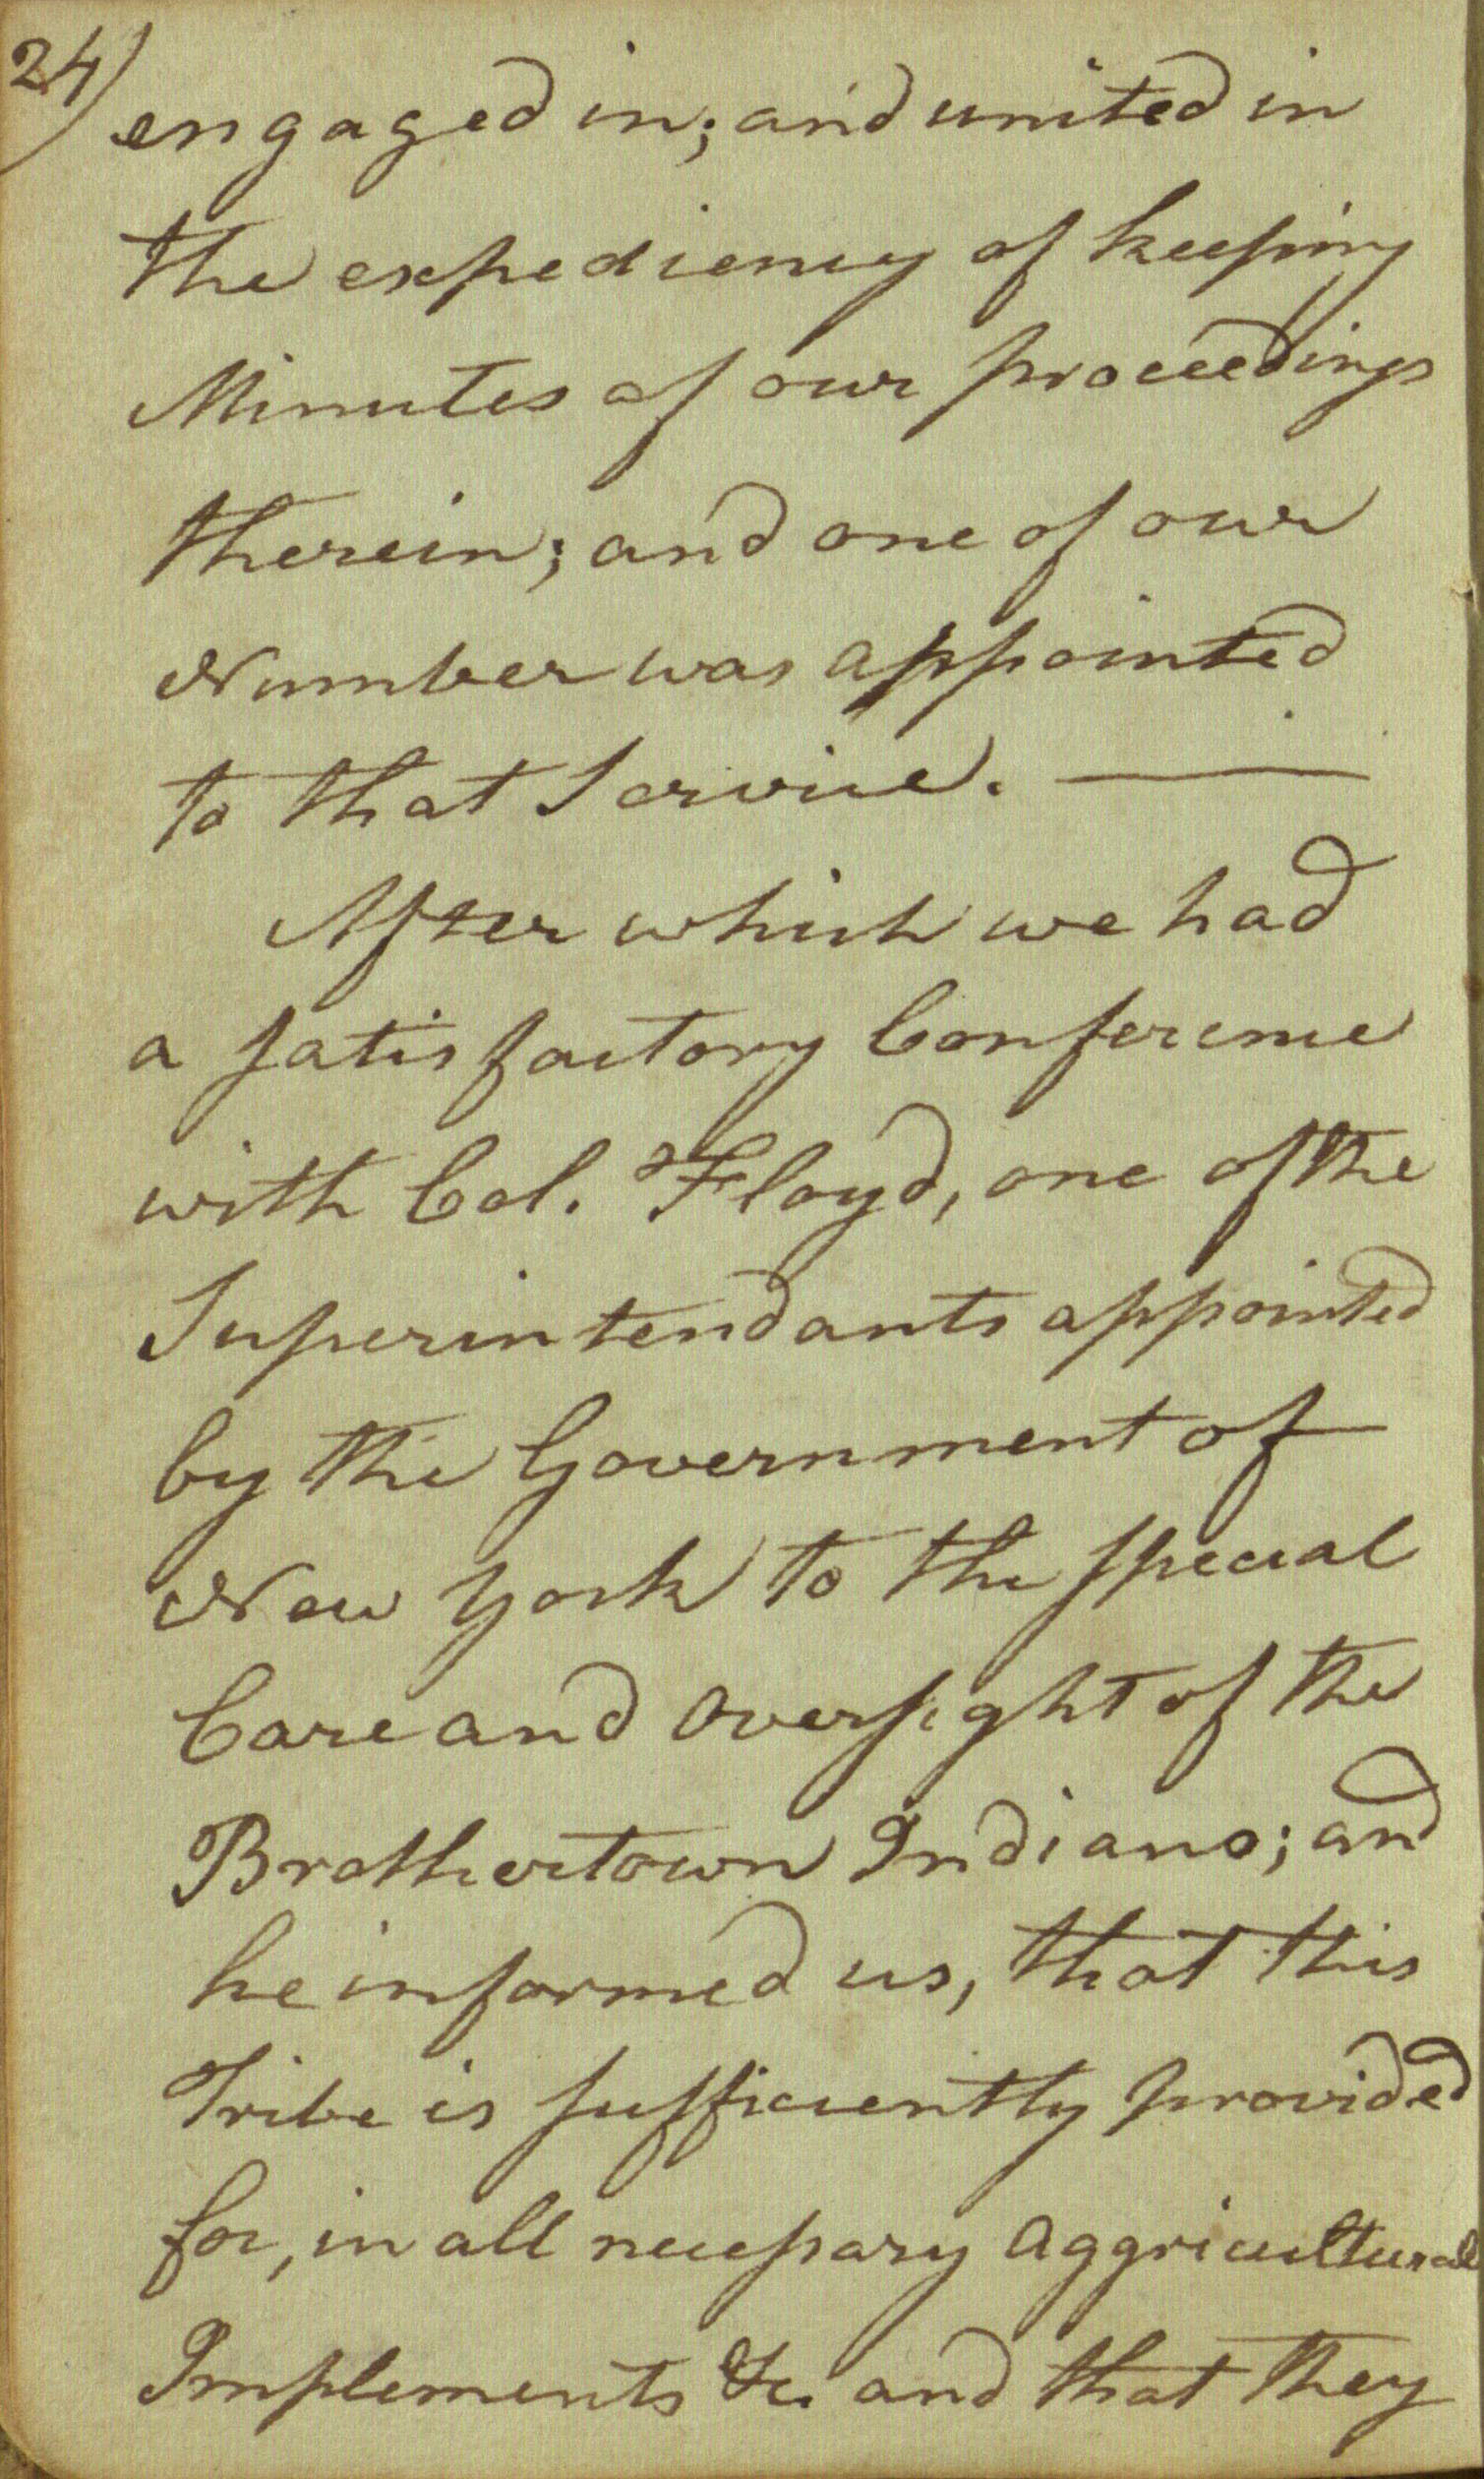 24)
engaged in; and united in
the expediency of keeping
Minutes of our proceedings
therein; and one of our
Number was appointed
to that Service. —
After which we had
a satisfactory Conference
with Col. Floyd, one of the
Superintendants appointed
by the Government of
New York to the special
Care and Oversight of the
Brothertown Indians; and
he informed us, that this
Tribe is sufficiently provided
for, in all necessary Aggricultural
Implements &c. and that they